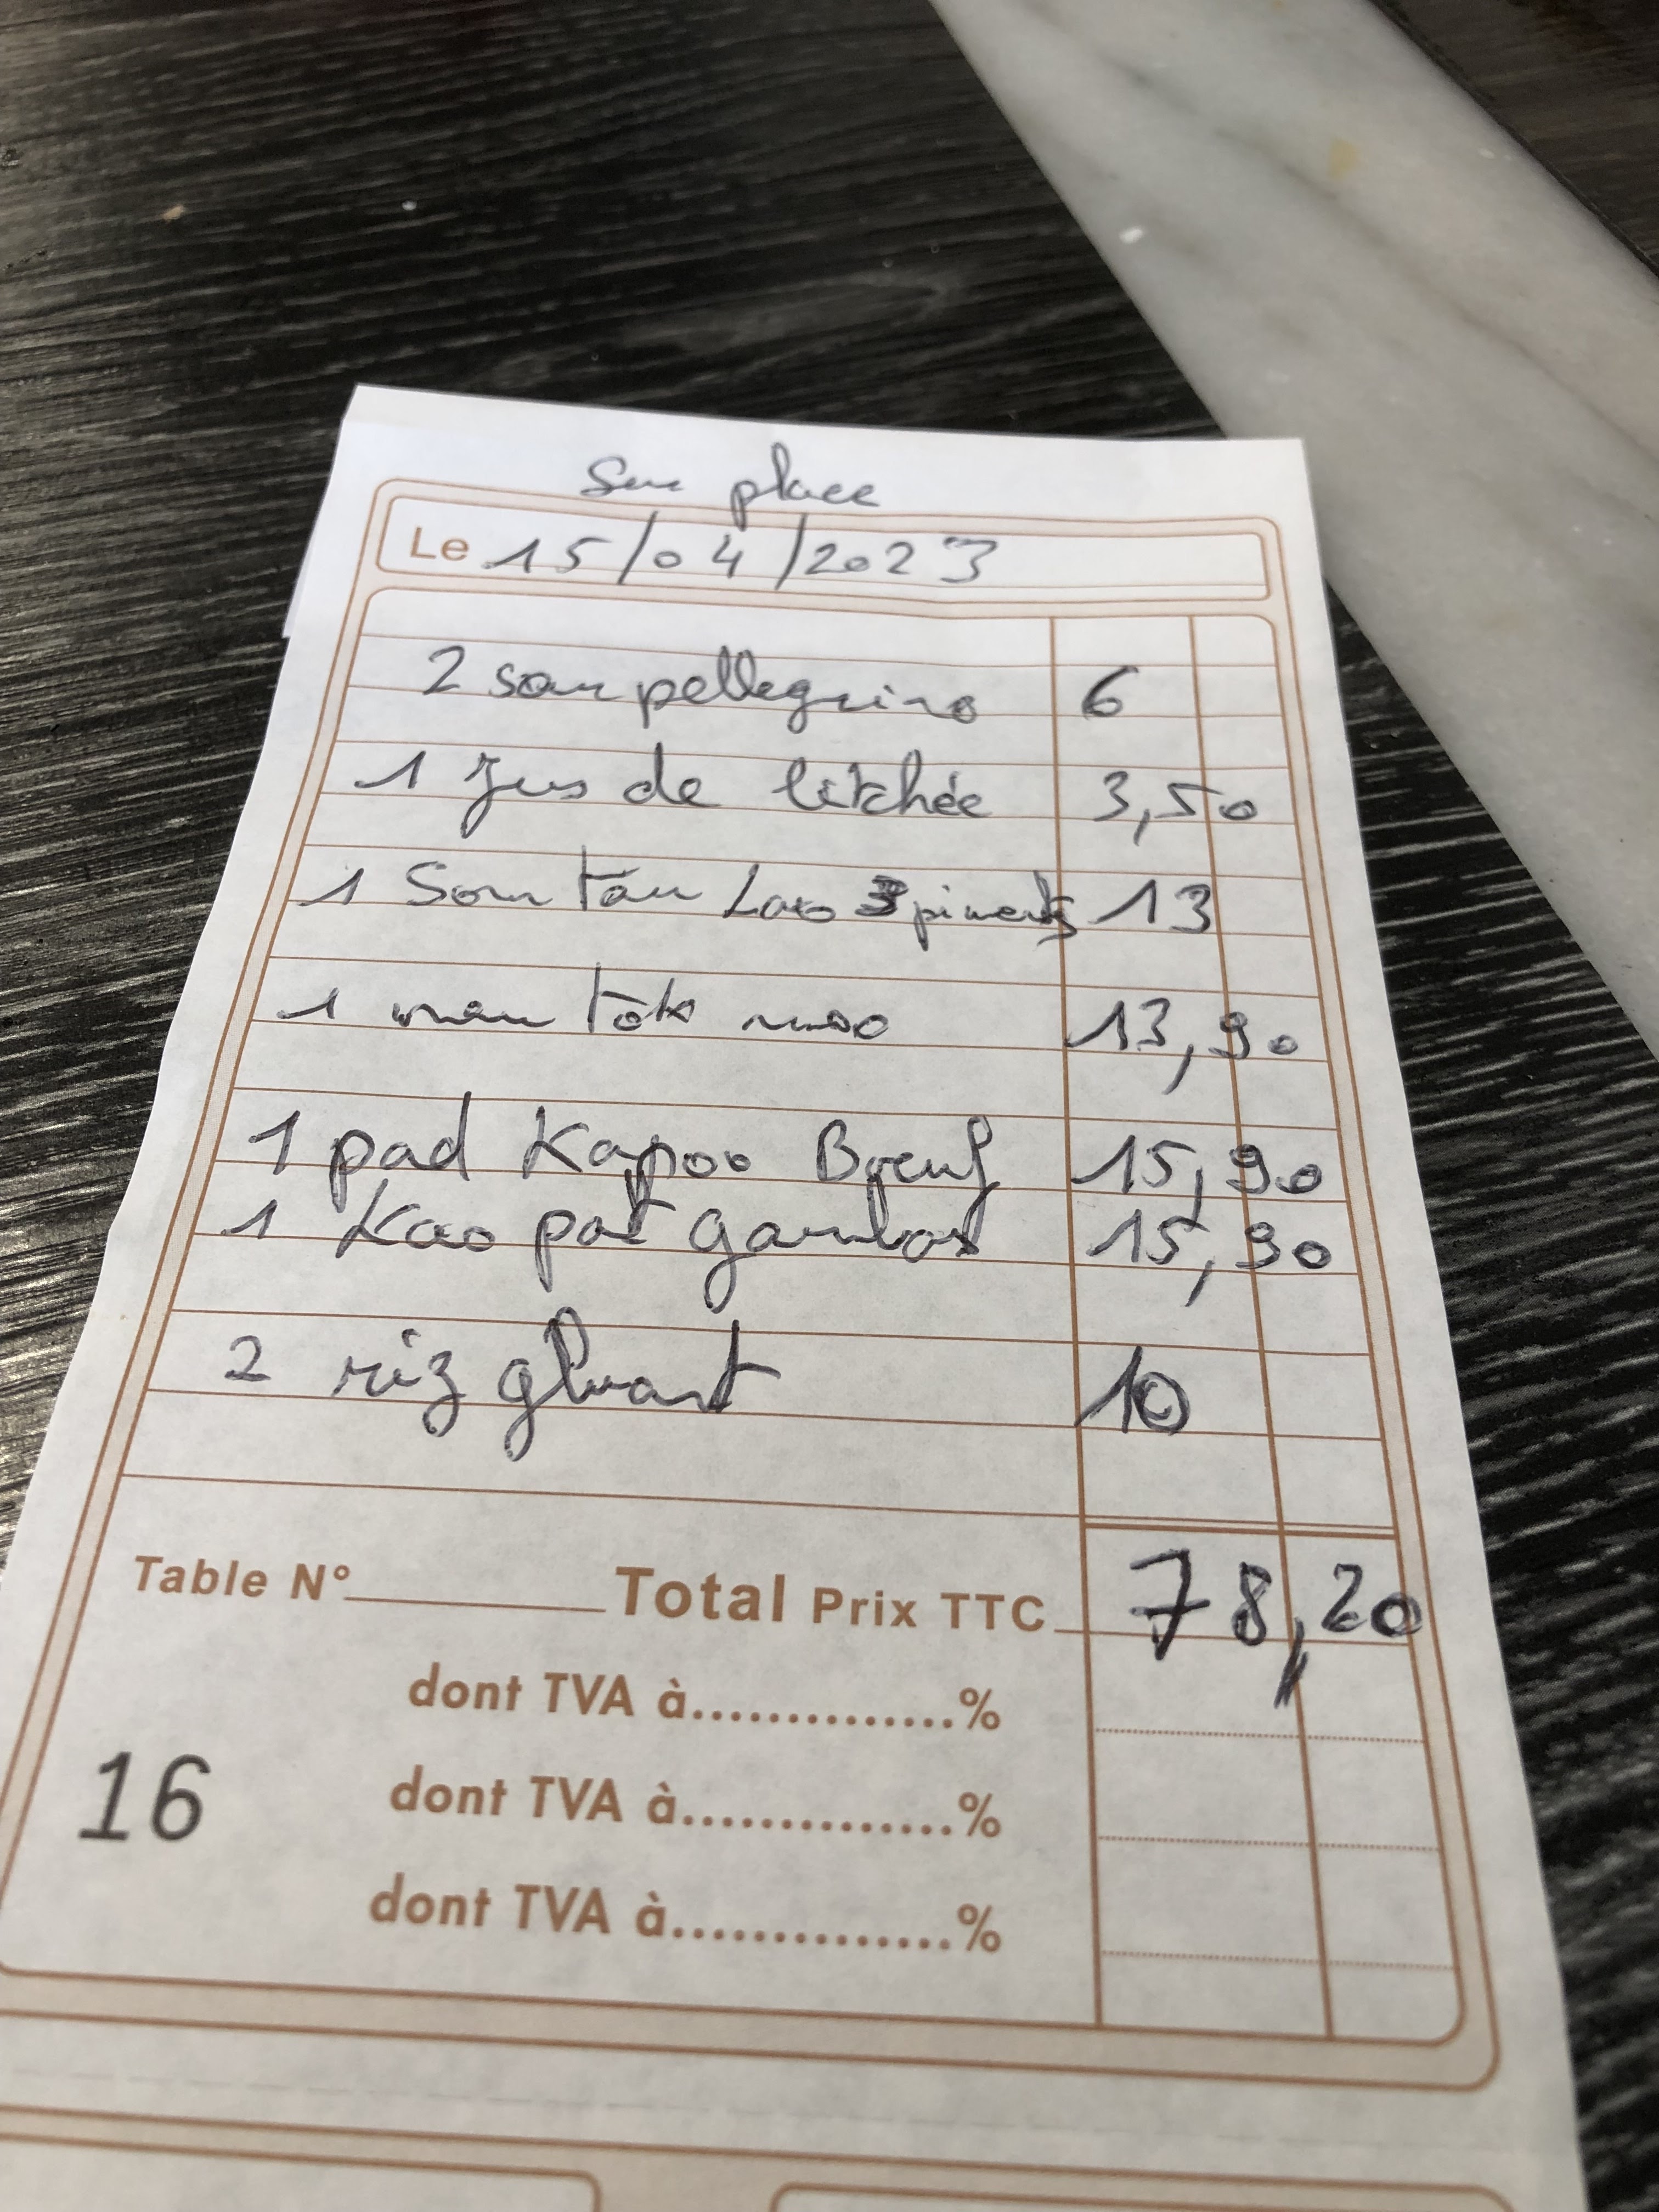 Sur place
Le 15/04/2023
2 san pellegrino 6
1 Jus de litchée 3,50
1 Som Tam Lao 3 piments 13
1 nam tok nuoo 13,90
1 pad Kapoo Bœuf 15,90
1 Kao pat gambas 15,90
2 riz gluant 10
Table N° Total Prix TTC 78,20
dont TVA à..............%
16
dont TVA à..............%
dont TVA à..............%